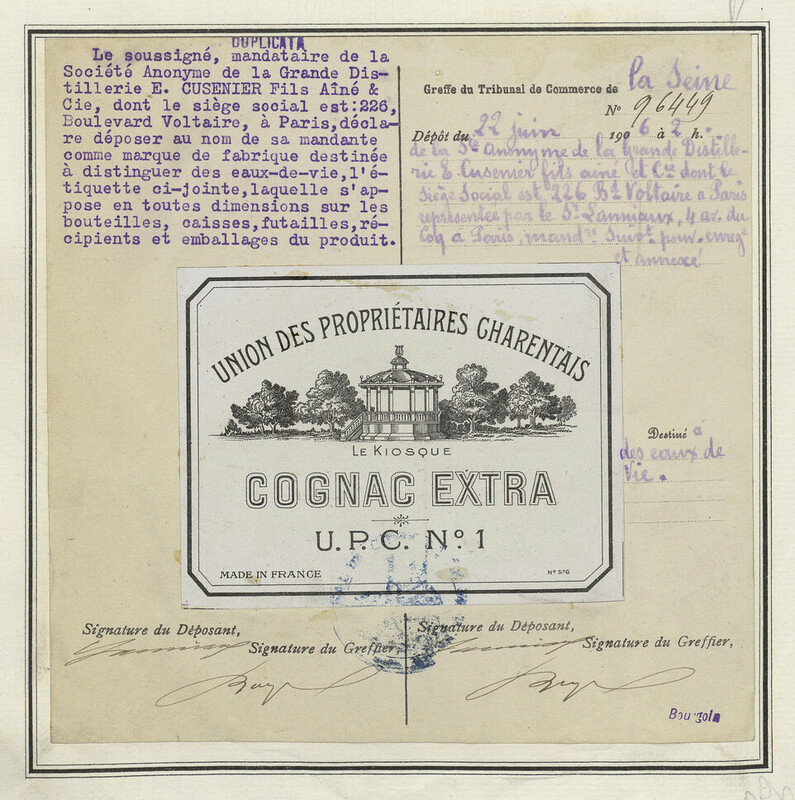 DUPLICATA
Le soussigné, mandataire de la
Société Anonyme de la Grande Dis-
tillerie E. CUSENIER Fils Aîné &
Cie, dont le siège social est:226,
Boulevard Voltaire, à Paris,décla-
re déposer au nom de sa mandante
comme marque de fabrique destinée
à distinguer des eaux-de-vie,l'é-
tiquette ci-jointe,laquelle s'ap-
pose en toutes dimensions sur les
bouteilles, caisses,futailles,ré-
cipients et emballages du produit.
Greffe du Tribunal de Commerce de la Seine
N° 96449
Dépôt du 22 juin 1906 à 2 h.
de la Sté Anonyme de la Grande Distille-
rie E. Cusenier fils ainé et Cie dont le
Siège Social est 226 Bd Voltaire a Paris
représentée par le Sr 4 av. du
Coq a Paris, mandre Suivt pouv. enregé
et annexé
UNION DES PROPRIÉTAIRES CHARENTAIS
LE KIOSQUE
COGNAC EXTRA
U.P.C. No. 1
MADE IN FRANCE
No 576
Destiné à
des eaux de
Vie.
Signature du Déposant,
Signature du Greffier,
Signature du Déposant,
Signature du Greffier,